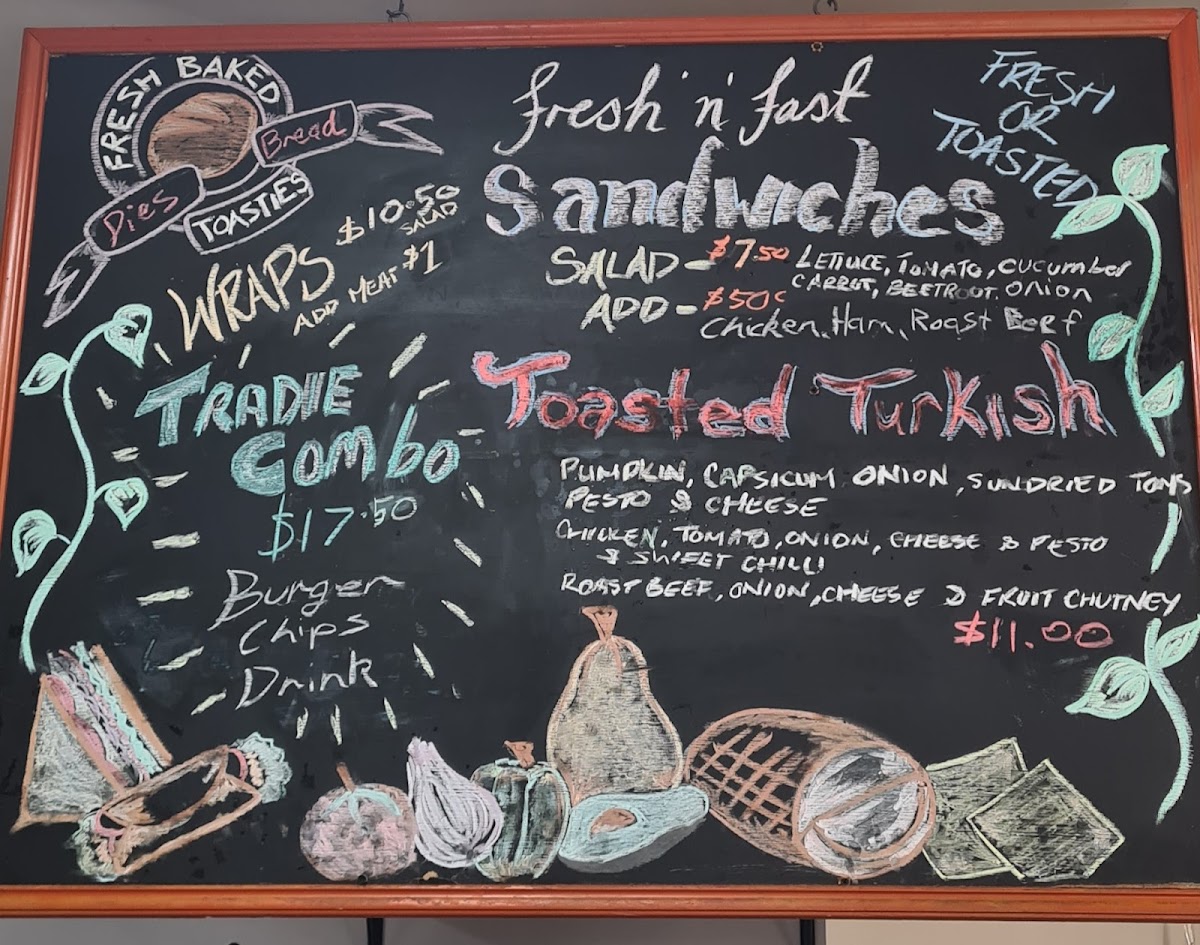 FRESH BAKED
Bread
Dies
TOASTIES
WRAPS $10.50
SALAD
ADD MEAT $1
TRADIE
Combo
$17.50
Burger
Chips
Drink
fresh 'n' fast
Sandwiches
FRESH
OR
TOASTED
SALAD - $7.50 LETTUCE, TOMATO, CUCUMBER
CARROT, BEETROOT. ONION
ADD - $50c
Chicken, Ham, Roast Beef
Toasted Turkish
PUMPKIN, CAPSICUM ONION, SUNDRIED TOMS
PESTO & CHEESE
CHICKEN, TOMATO, ONION, CHEESE & PESTO
& SWEET CHILLI
ROAST BEEF, ONION, CHEESE & FRUIT CHUTNEY
$11.00